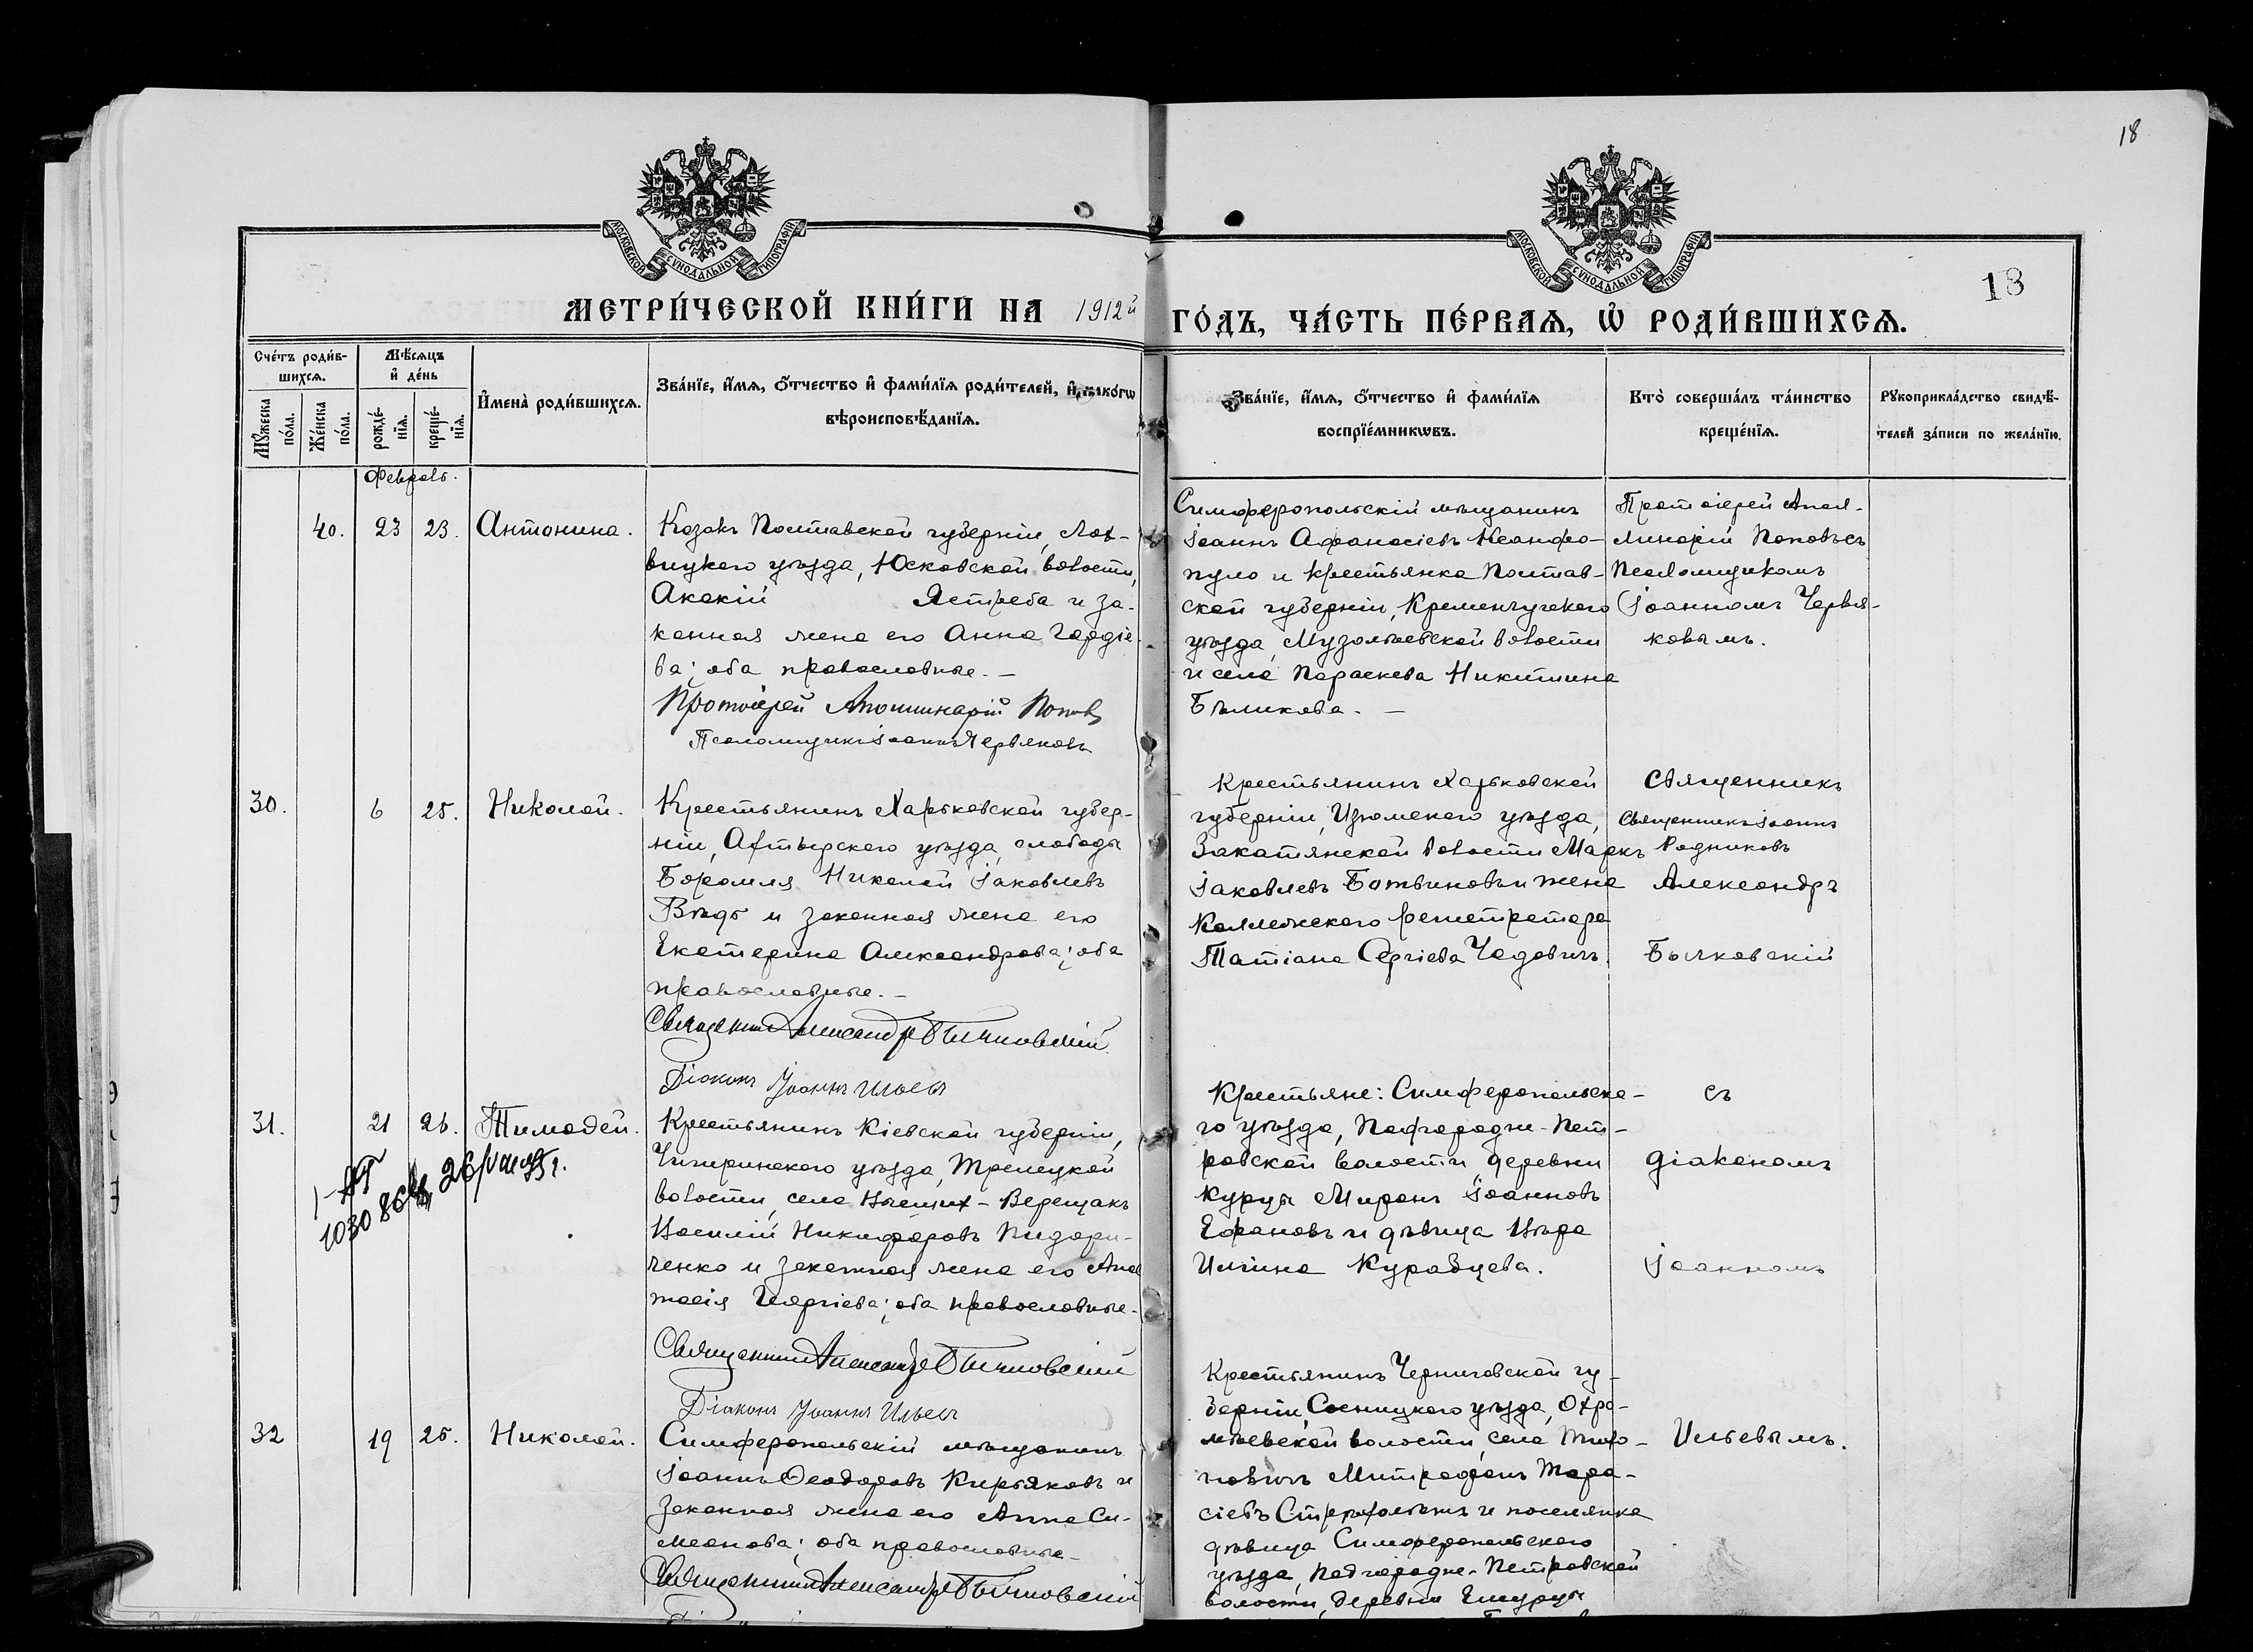 18
МОСКОВСКОЙ СѴНОДАЛЬНОЙ ТИПОГРАФІИ
МОСКОВСКОЙ СѴНОДАЛЬНОЙ ТИПОГРАФІИ
18
МЕТРИ́ЧЕСКОЙ КНИ́ГИ НА 1912й ГО́ДЪ, ЧА́СТЬ ПЕ́РВАЯ, Ѡ РОДИ́ВШИХСЯ.
Сче́тъ роди́в-
шихся.
Мѣ́сяцъ
и де́нь
Мꙋ́жеска по́ла.
Же́нска по́ла.
рожде́-
нїя.
креще́-
нїя.
И҆мена̀ роди́вшихся.
Зва́нїе, и҆́мя, о҆́тчество и҆ фами́лїя роди́телей, и҆ како́гѡ
вѣроисповѣ́данїя.
Зва́нїе, и҆́мя, о҆́тчество и҆ фами́лїя
воспрїе́мникѡвъ.
Кто̀ соверша́лъ та́инство
креще́нїя.
Рꙋкоприкла́дство свидѣ́-
телей за́писи по жела́нїю.
Февраль.
40. 23 23. Антонина.
Козакъ Полтавской губерніи, Лох-
вицкаго уѣзда, Юсковской волости,
Акакій Ястреба и за-
конная жена его Анна Гордіе-
ва; оба православные. —
Протоіерей Аполлинарій Поповъ
Псаломщикъ Іоаннъ Червяковъ
Симферопольскій мѣщанинъ
Іоаннъ Афанасіевъ Ксанфо-
пуло и крестьянка Полтав-
ской губерніи, Кременчугскаго
уѣзда,
и села Параскева Никитина
Бѣликова. —
Протоіерей Апол-
линарій Поповъ съ
Псаломщикомъ
Іоанномъ Червя-
ковымъ.
30. 6 25. Николай.
Крестьянинъ Харьковской губер-
ніи, Ахтырскаго уѣзда, слободы
Боромля Николай Іаковлевъ
и законная жена его
Екатерина Александрова; оба
православные. —
Священникъ Александръ
Діаконъ Іоаннъ Ильевъ
Крестьянинъ Харьковской
губерніи, Изюмскаго уѣзда,
волости Маркъ
Іаковлевъ Ботвиновъ и жена
Коллежскаго регистратора
Татіана Сергіева Чадовичъ.
Священникъ
Священникъ Іоаннъ
Родниковъ
Александръ
31. 21 26. Тимофей.
Крестьянинъ Кіевской губерніи,
Чигиринскаго уѣзда, Трилецкой
волости, села Верещакъ
Василій Никифоровъ
ченко и законная жена его Анас
тасія Георгіева; оба православные.
Священникъ Александръ
Діаконъ Іоаннъ Ильевъ
Крестьяне: Симферопольска-
го уѣзда, Подгородне-Пет-
ровской волости, деревни
Курцы Миронъ Іоанновъ
Ефановъ и дѣвица Вѣра
Иліина Курабцева.
съ
діакономъ
Іоанномъ
32 19 26. Николай.
Симферопольскій мѣщанинъ
Іоаннъ Ѳеодоровъ Кирьяковъ и
законная жена его Анна Си-
меонова; оба православные —
Священникъ Александръ
Крестьянинъ Черниговской гу-
берніи, Сосницкаго уѣзда, Охра-
мѣевской волости, села Тихо-
новичъ Митрофанъ Тара-
сіевъ и поселянка
дѣвица Симферопольскаго
уѣзда, Подгородне-Петровской
волости, деревни
Ильевымъ.